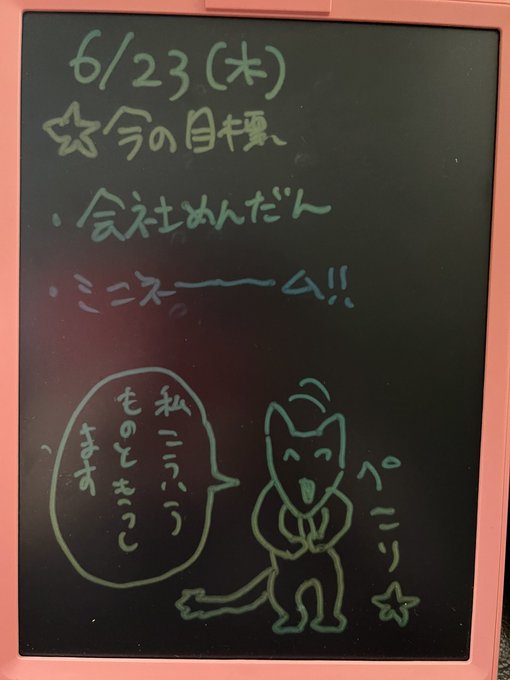 6/23(木)
☆今の目標、
・会社めんだん
・ミニネーーーム!!
私こういう
ものともうし
ます
ペコリ☆